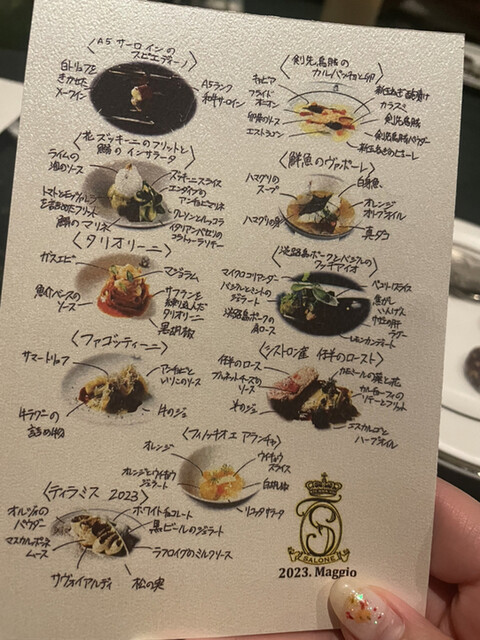 〈A5サーロインの
スピエディーノ〉
白トリュフを
きかせた
A5ランク
和牛サーロイン
〈剣先烏賊の
カルパッチョと卵〉
キャビア
フライド
オニオン
卵黄のソース
エストラゴン
カラスミ
剣先烏賊
剣先烏賊パウダー
〈花ズッキーニのフリットと
鯵のインサラータ
ライムの
泡のソース
トマトとモッツァレラ
を詰めたフリット
鯵のマリネ
ズッキーニスライス
エンダイブの
アンチョビマリネ
イタリアンパセリの
〈鮮魚のヴァポーレ〉
ハマグリの
スープ
ハマグリの身
白身魚
オレンジ
オリーブオイル
真ダコ
〈タリオリーニ〉
ガスエビ
魚介ベースの
ソース
マジョラム
サフランを
練り込んだ
タリオリーニ
黒胡椒
〈淡路島ポークとバジルの
マイクロコリアンダー
バジルとミントの
ジェラート
淡路島ポークの
肩ロース
焦がし
いんげん
レモンカンディート
〈ファゴッティーニ〉
サマートリュフ
アンチョビと
いりこのソース
牛ラグーの
詰め物
牛のジュ
〈シストロン産 仔羊のロースト〉
仔羊のロース
ブルネットチーズの
ソース
羊のジュ
カモミールの葉と花
カルチョーフィの
エスカルゴと
ハーブオイル
〈フィノッキオ エ アランチャ〉
オレンジ
オレンジとウイキョウ
ジェラート
ウイキョウ
スライス
白胡椒
リコッタサラータ
〈ティラミス 2023〉
オルヅォの
パウダー
マスカルポーネ
ムース
サヴォイアルディ
ホワイトチョコレート
黒ビールのジェラート
ラフロイグのミルクソース
松の実
SALONE
2023. Maggio